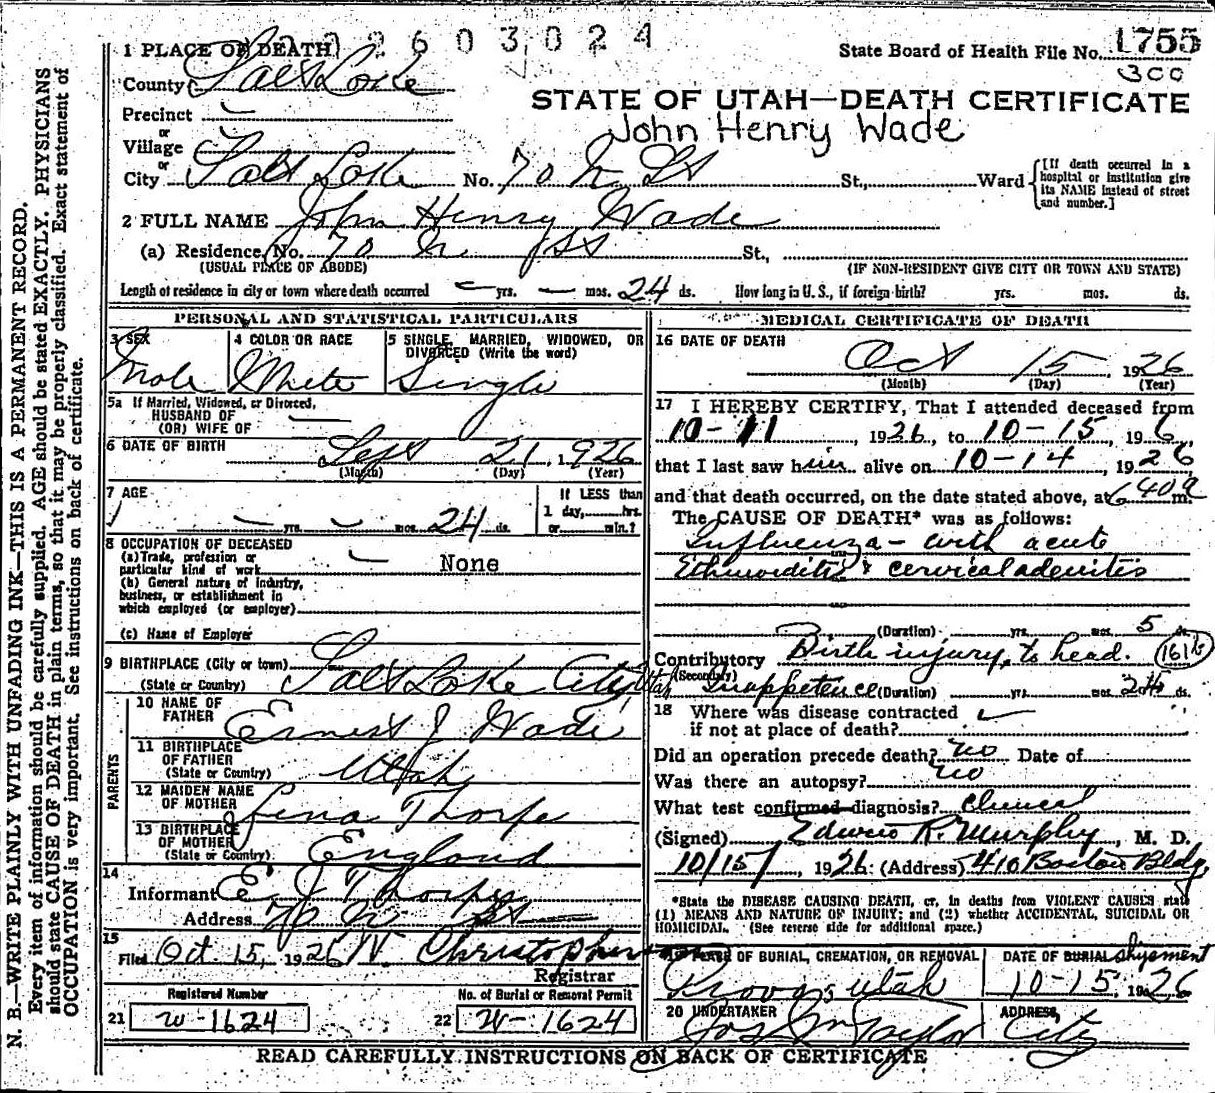 2603024
1 PLACE OF DEATH
State Board of Health File No. 1755
County Salt Lake
300
STATE OF UTAH—DEATH CERTIFICATE
Precinct
John Henry Wade
or
Village
or
City Salt Lake No. 70 N St St., Ward
[If death occurred in a hospital or institution give its NAME instead of street and number.]
2 FULL NAME John Henry Wade
(a) Residence, No. 70 N St St.,
(USUAL PLACE OF ABODE) (IF NON-RESIDENT GIVE CITY OR TOWN AND STATE)
Length of residence in city or town where death occurred — yrs. — mos. 24 ds. How long in U. S., if foreign birth? yrs. mos. ds.
PERSONAL AND STATISTICAL PARTICULARS
3 SEX
Male
4 COLOR OR RACE
White
5 SINGLE, MARRIED, WIDOWED, OR DIVORCED (Write the word)
Single
5a If Married, Widowed, or Divorced,
HUSBAND OF
(OR) WIFE OF —
6 DATE OF BIRTH Sept 21, 1926
(Month) (Day) (Year)
7 AGE
— yrs. — mos. 24 ds.
If LESS than
1 day, hrs.
or min.?
8 OCCUPATION OF DECEASED
(a) Trade, profession or
particular kind of work — None
(b) General nature of industry,
business, or establishment in
which employed (or employer)
(c) Name of Employer
9 BIRTHPLACE (City or town) Salt Lake City, Utah
(State or Country)
PARENTS
10 NAME OF
FATHER Ernest J Wade
11 BIRTHPLACE
OF FATHER
(State or Country) Utah
12 MAIDEN NAME
OF MOTHER Lena Thorpe
13 BIRTHPLACE
OF MOTHER
(State or Country) England
14
Informant E J Thorpe
Address 70 N St
15
Filed Oct. 15, 1926 W. Christopherson
Registrar
Registered Number
21 W-1624
No. of Burial or Removal Permit
22 W-1624
MEDICAL CERTIFICATE OF DEATH
16 DATE OF DEATH
Oct 15, 1926
(Month) (Day) (Year)
17 I HEREBY CERTIFY, That I attended deceased from
10-11, 1926, to 10-15, 1926,
that I last saw him alive on 10-14, 1926
and that death occurred, on the date stated above, at 640a m.
The CAUSE OF DEATH* was as follows:
Influenza - with acute
Ethmoiditis & cervical adenitis
(Duration) yrs. mos. 5 ds.
Contributory Birth injury, to head. 161b
(Secondary) Inappetence (Duration) yrs. mos. 24 ds.
18 Where was disease contracted
if not at place of death?
Did an operation precede death? no Date of
Was there an autopsy? no
What test confirmed diagnosis? Clinical
(Signed) Edwin R. Murphy, M. D.
10/15, 1926 (Address) 410 Boston Bldg
*State the DISEASE CAUSING DEATH, or, in deaths from VIOLENT CAUSES state
(1) MEANS AND NATURE OF INJURY; and (2) whether ACCIDENTAL, SUICIDAL OR
HOMICIDAL. (See reverse side for additional space.)
19 PLACE OF BURIAL, CREMATION, OR REMOVAL
Provo, Utah
DATE OF BURIAL Shipment
10-15, 1926
20 UNDERTAKER
Jos. Wm Taylor
ADDRESS
City
READ CAREFULLY INSTRUCTIONS ON BACK OF CERTIFICATE
N. B.—WRITE PLAINLY WITH UNFADING INK—THIS IS A PERMANENT RECORD.
Every item of information should be carefully supplied. AGE should be stated EXACTLY. PHYSICIANS
should state CAUSE OF DEATH in plain terms, so that it may be properly classified. Exact statement of
OCCUPATION is very important. See instructions on back of certificate.